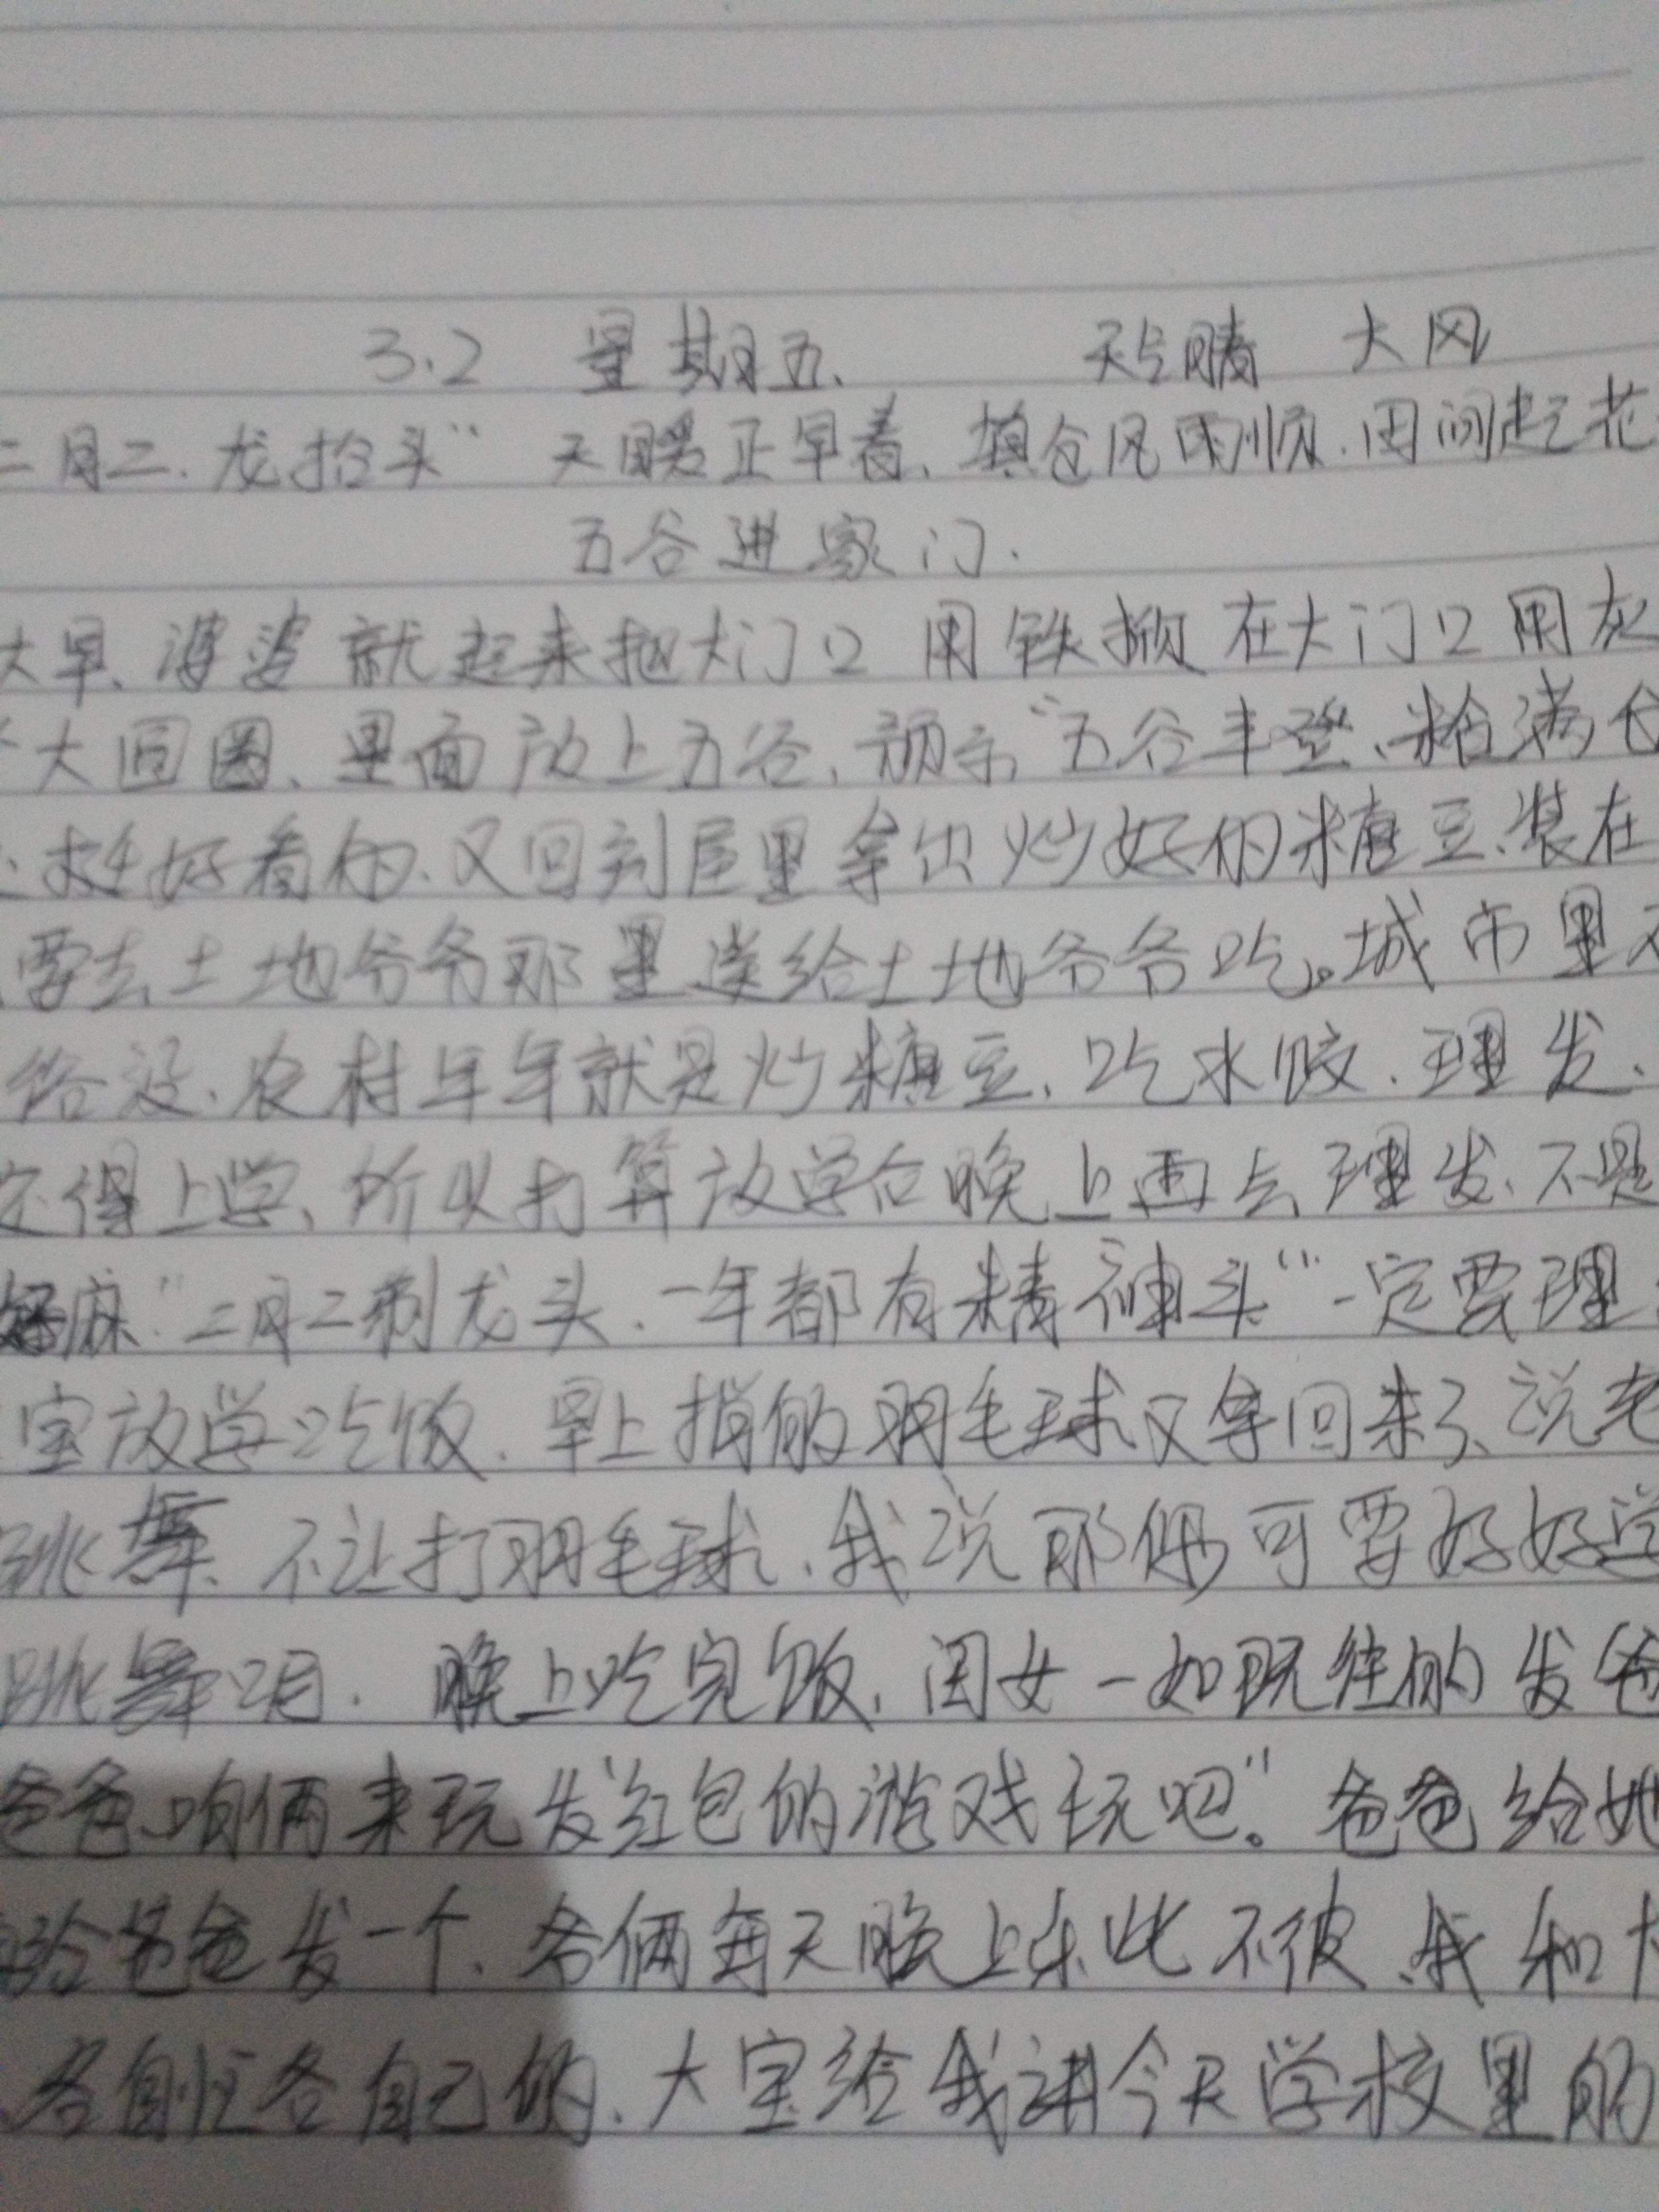 3.2 星期五、 天气晴 大风
二月二.龙抬头" 天暖正早春、填仓风雨顺.田间起花
五谷进家门.
大早、婆婆就起来把大门口 用铁掀在大门口用灰
大圆圈、里面放上五谷,预示"五谷丰登、粮满仓
挺好看的、又回到屋里拿出炒好的糖豆、装在
要去土地爷爷那里送给土地爷爷吃。城市里不
给没.农村年年就是炒糖豆、吃水饺.理发.
宝得上学、所以打算放学后晚上再去理发、不是
好麻"二月二剃龙头.一年都有精神头"一定要理
宝放学吃饭.早上捎的羽毛球又拿回来了、说老
跳舞、不让打羽毛球、我说那你可要好好学
跳舞呗. 晚上吃完饭,闺女一如既往的发爸
爸爸、咱俩来玩发红包的游戏玩吧"。爸爸给她
给爸爸发一个、爷俩每天晚上乐此不彼、我和大
各自忙各自己的、大宝给我讲今天学校里的